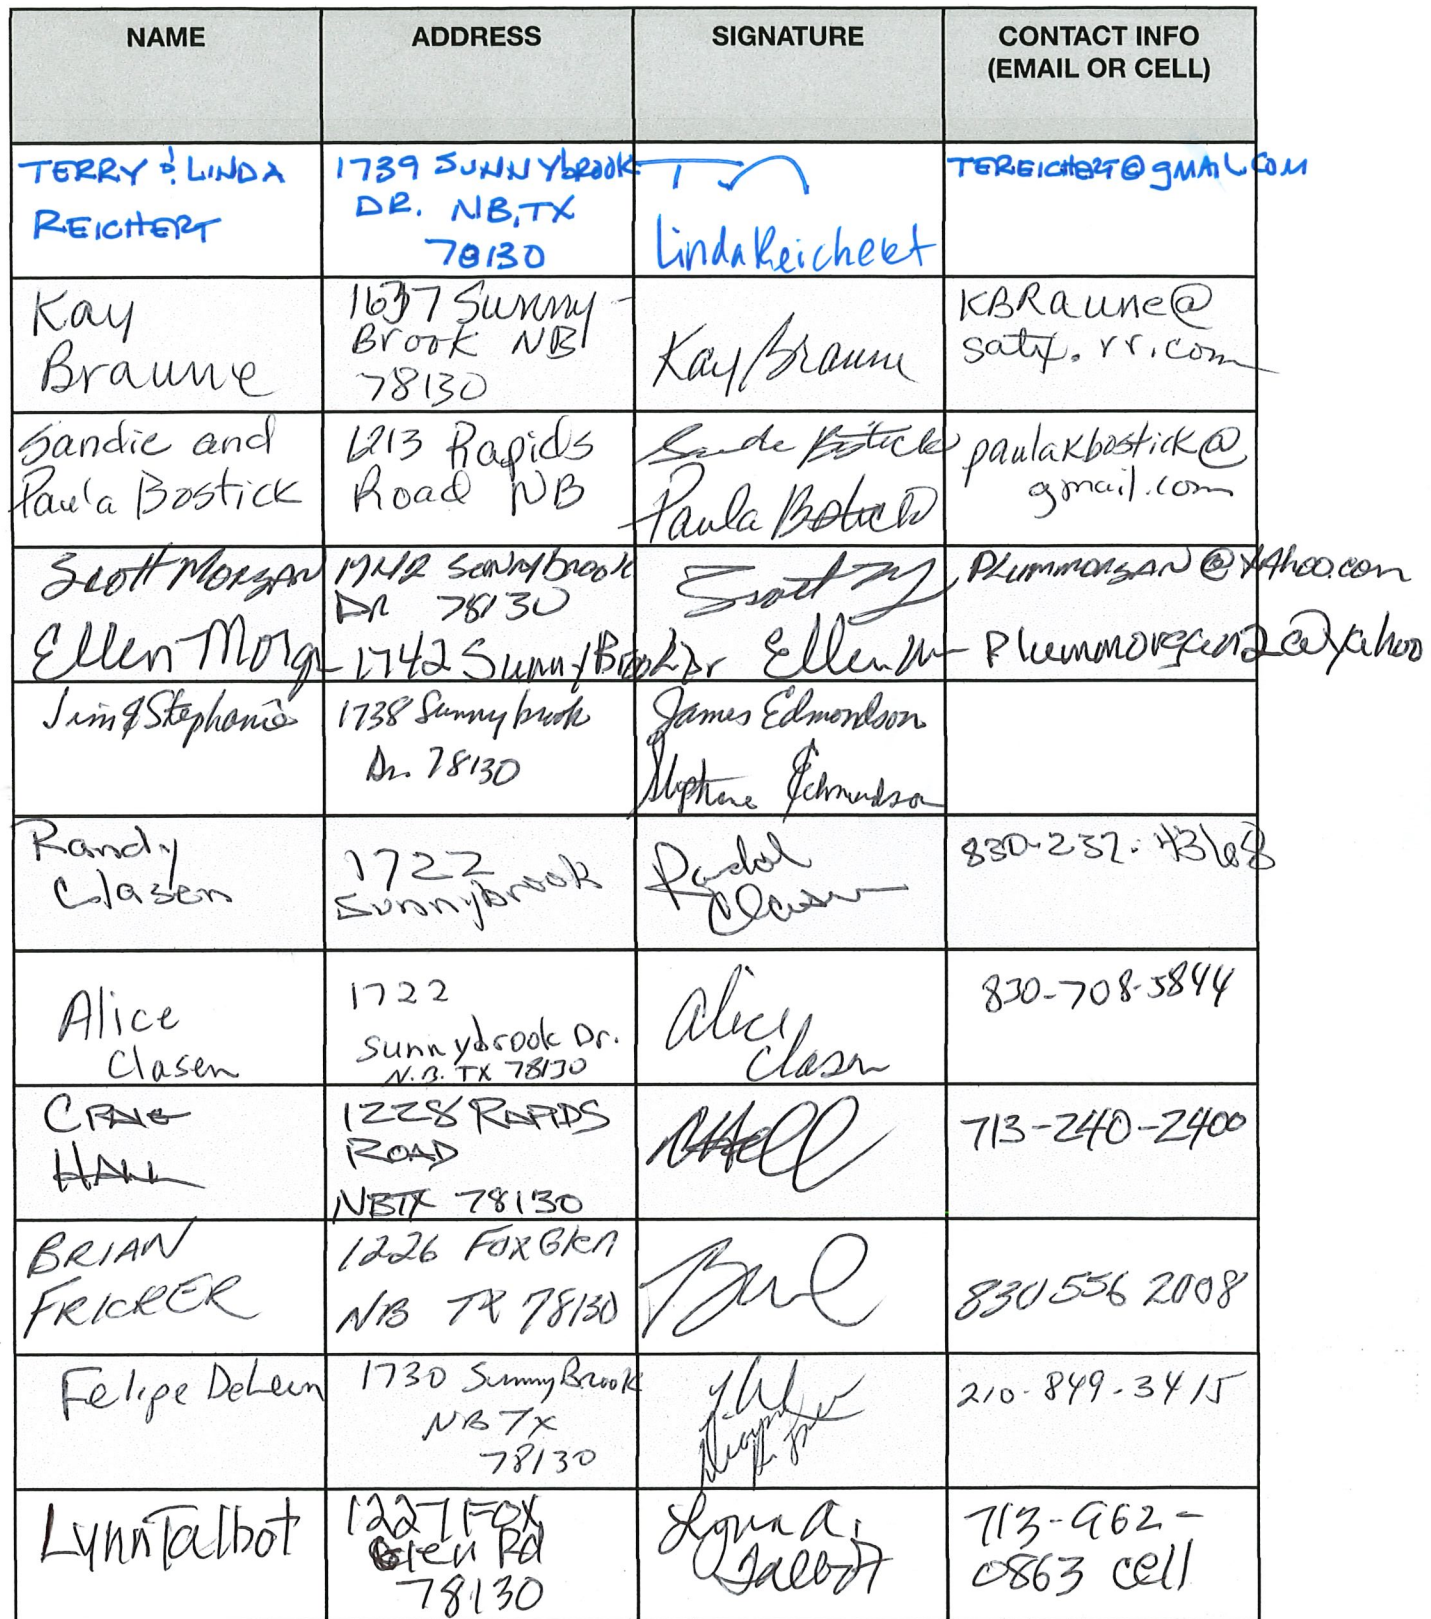 NAME
ADDRESS
SIGNATURE
CONTACT INFO
(EMAIL OR CELL)
TERRY & LINDA
REICHERT
1739 SUNNYbrook
DR. NB, TX
78130
Linda Reichert
TEREICHERT@gMAIL.COM
Kay
Braune
1637 Sunny-
Brook NB
78130
Kay Braune
KBRaune@
satx.rr.com
Sandie and
Paula Bostick
1213 Rapids
Road NB
Sandie Bostick
Paula Bostick
paulakbostick@
gmail.com
Scott Morgan
1742 Sunnybrook
DR 78130
Scott
PLummorgan@YAhoo.com
Ellen Morgan
1742 SunnyBrook Dr
Ellen
Plummorgan2@yahoo
Jim & Stephanie
1738 Sunnybrook
Dr. 78130
James Edmondson
Stephanie Edmondson
Randy
Clasen
1722
Sunnybrook
Randal
Clasen
830-237-4368
Alice
Clasen
1722
Sunnybrook Dr.
N.B. TX 78130
Alice
Clasen
830-708-5844
CRAIG
HALL
1228 RAPIDS
ROAD
NBTX 78130
713-240-2400
BRIAN
FRICKER
1226 Fox Glen
NB TX 78130
830 556 2008
Felipe DeLeon
1730 SunnyBrook
NB TX
78130
210-849-3415
Lynn Talbot
1227 Fox
Glen Rd
78130
Lynn A.
Talbot
713-962-
0863 cell